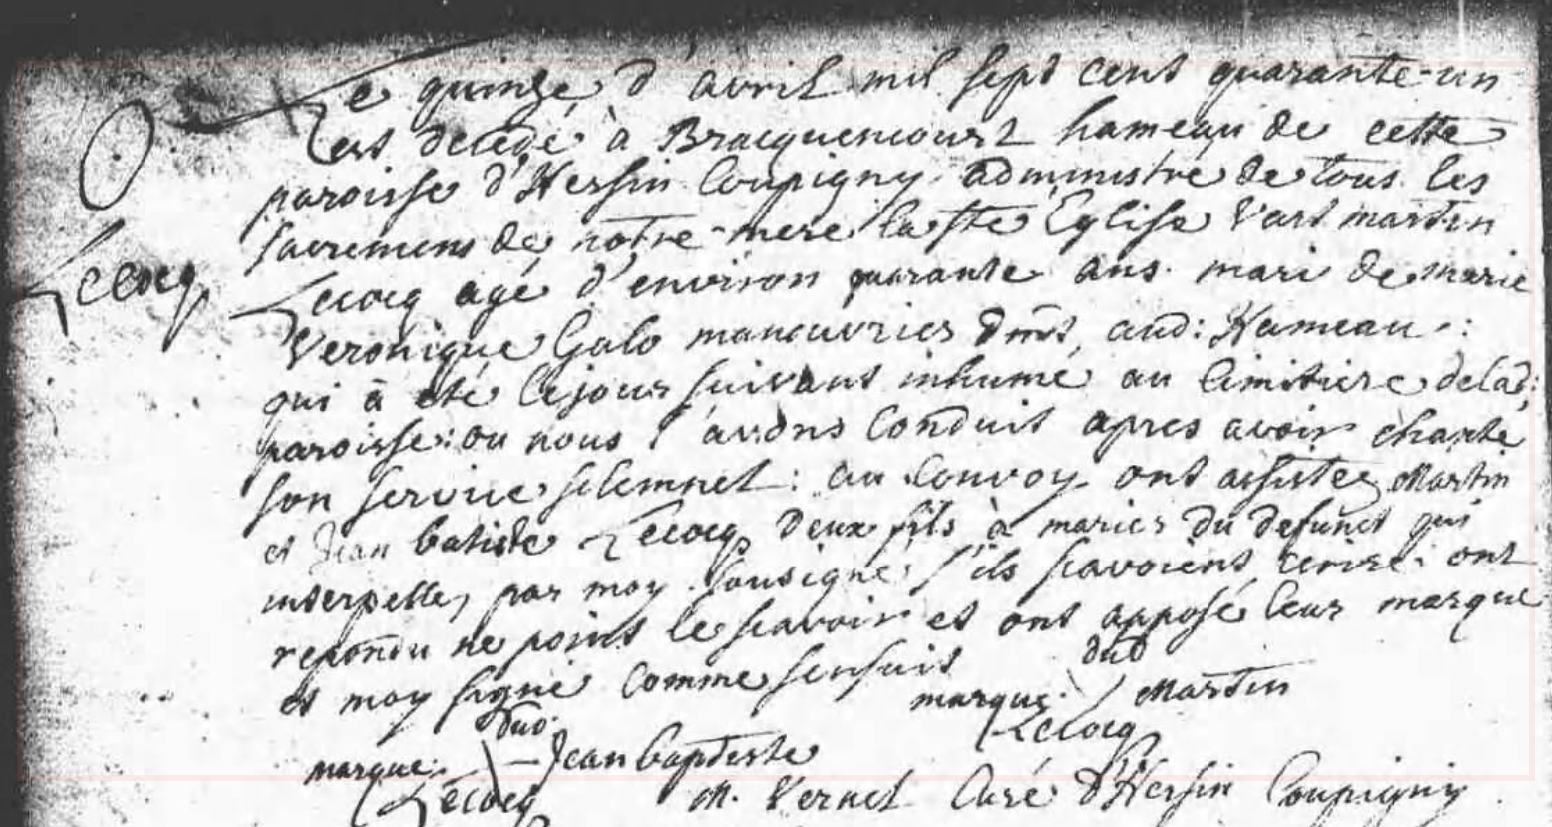 Le quinze d'avril mil sept cent quarante-un
est decédé à Bracquencourt hameau de cette
paroisse d'Hersin Coupigny administré de tous les
sacremens de notre mere la ste Église Vast martin
Lecocq
Lecocq agé d'environ quarante ans. mari de marie
Veronique Galo manouvrier dmt aud: Hameau:
qui à été le jour suivant inhumé au cimitiere de lad:
paroisse: ou nous l'avons conduit apres avoir chanté
son service solemnel: au convoy ont assistez Martin
et Jean batiste Lecocq deux fils à marier du defunct qui
interpellez par moy sousigné s'ils scavoient ecrire: ont
repondu ne point le scavoir et ont apposé leur marque
et moy signé comme sensuit
dud
marque Martin
Lecocq
dud:
marque: Jean baptiste
Lecocq M. Vernel Curé d'Hersin Coupigny